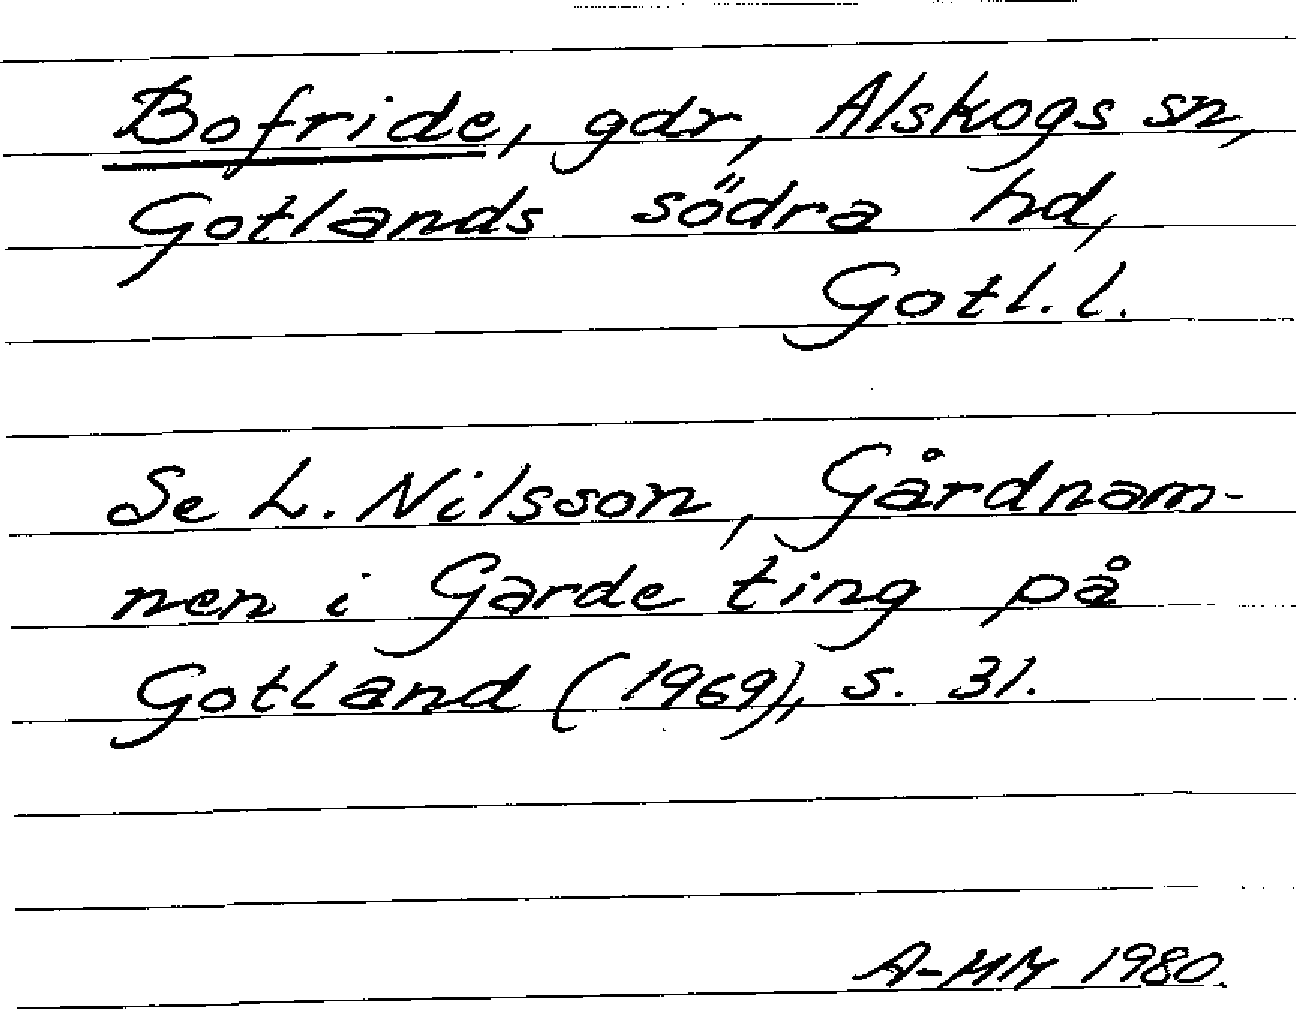 Bofride, gdr, Alskogs sn,
Gotlands södra hd,
Gotl. l.
Se L. Nilsson, Gårdnam-
nen i Garde ting på
Gotland (1969), s. 31.
A-MM 1980.